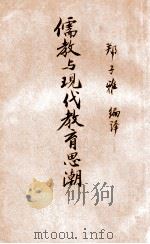 儒教与现代教育思潮
郑子雅 编译